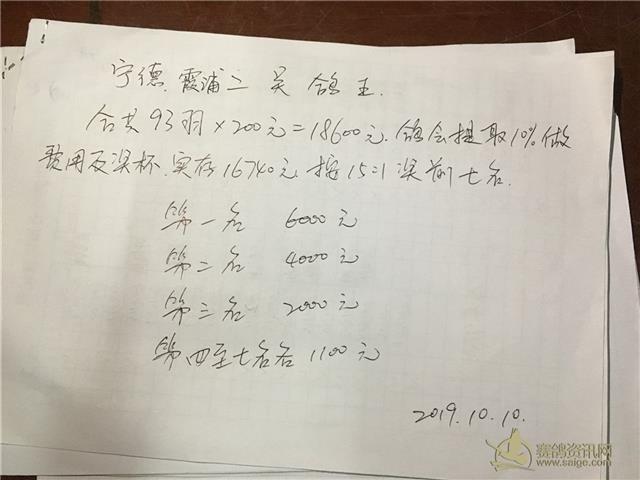 宁德、霞浦二关鸽王.
合共93羽×200元=18600元.鸽会提取10%做
费用及奖杯.实存16740元.按15:1奖前七名.
第一名 6000元
第二名 4000元
第三名 2000元
第四至七名各1100元
2019.10.10.
赛鸽资讯网
www.saige.com